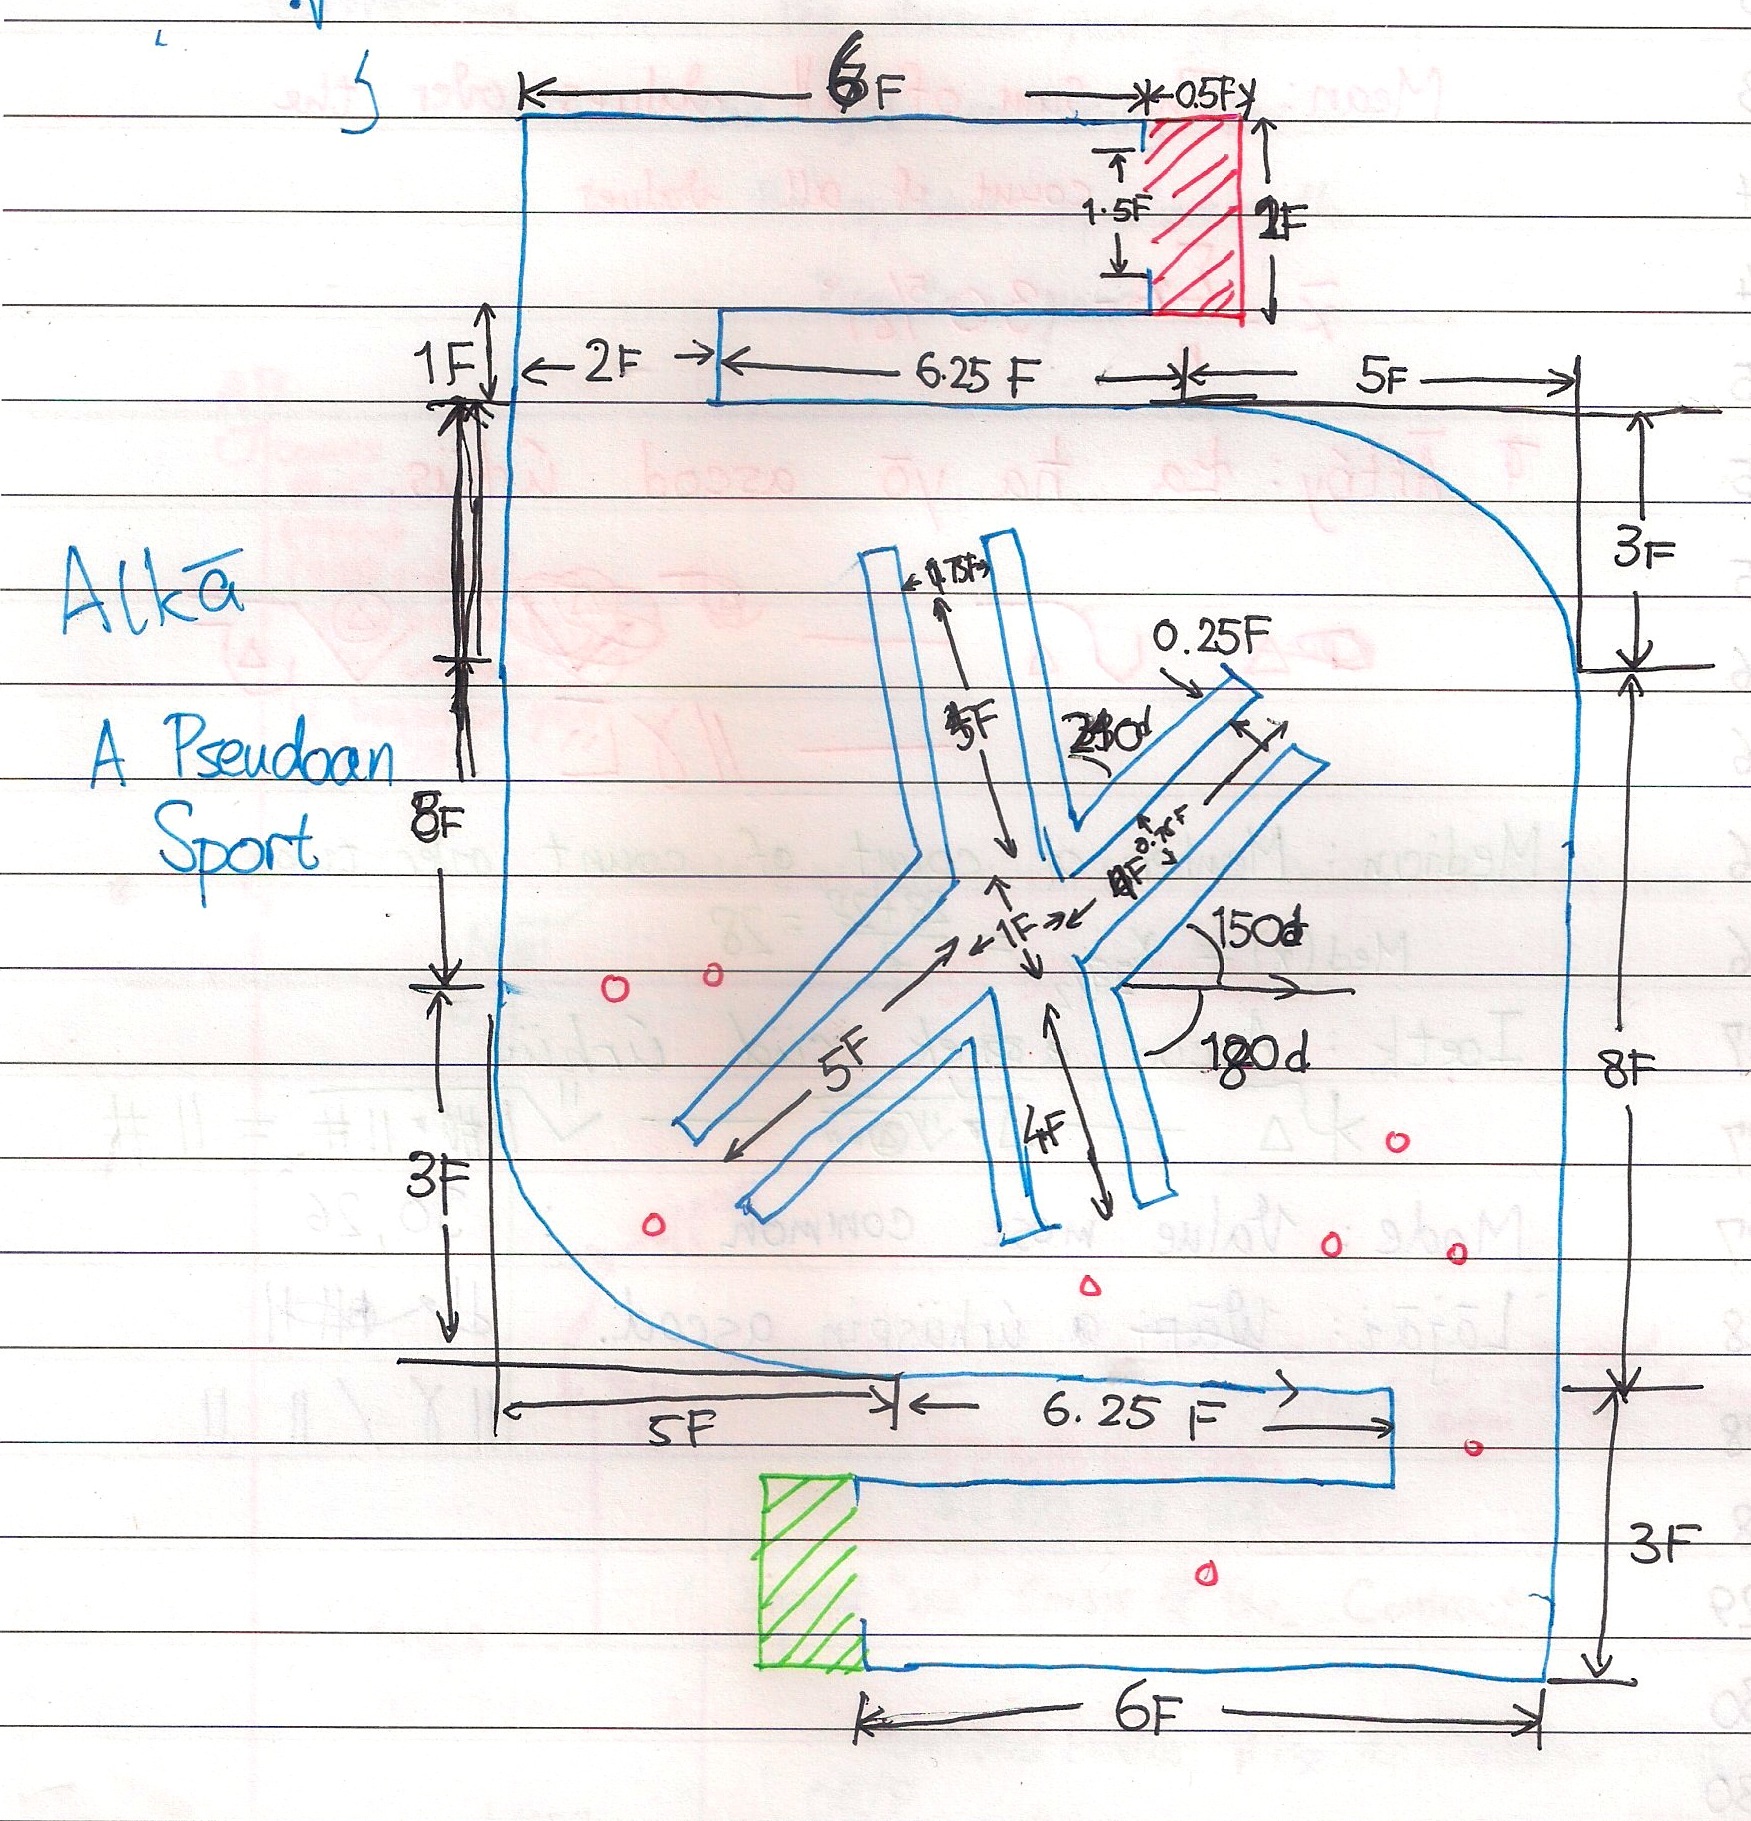 6F
0.5F
1.5F
2F
1F
2F
6.25 F
5F
3F
Alkā
A Pseudoan
Sport
0.25F
5F
8F
0.75F
1F
150d
180d
5F
4F
8F
3F
5F
6.25 F
3F
6F